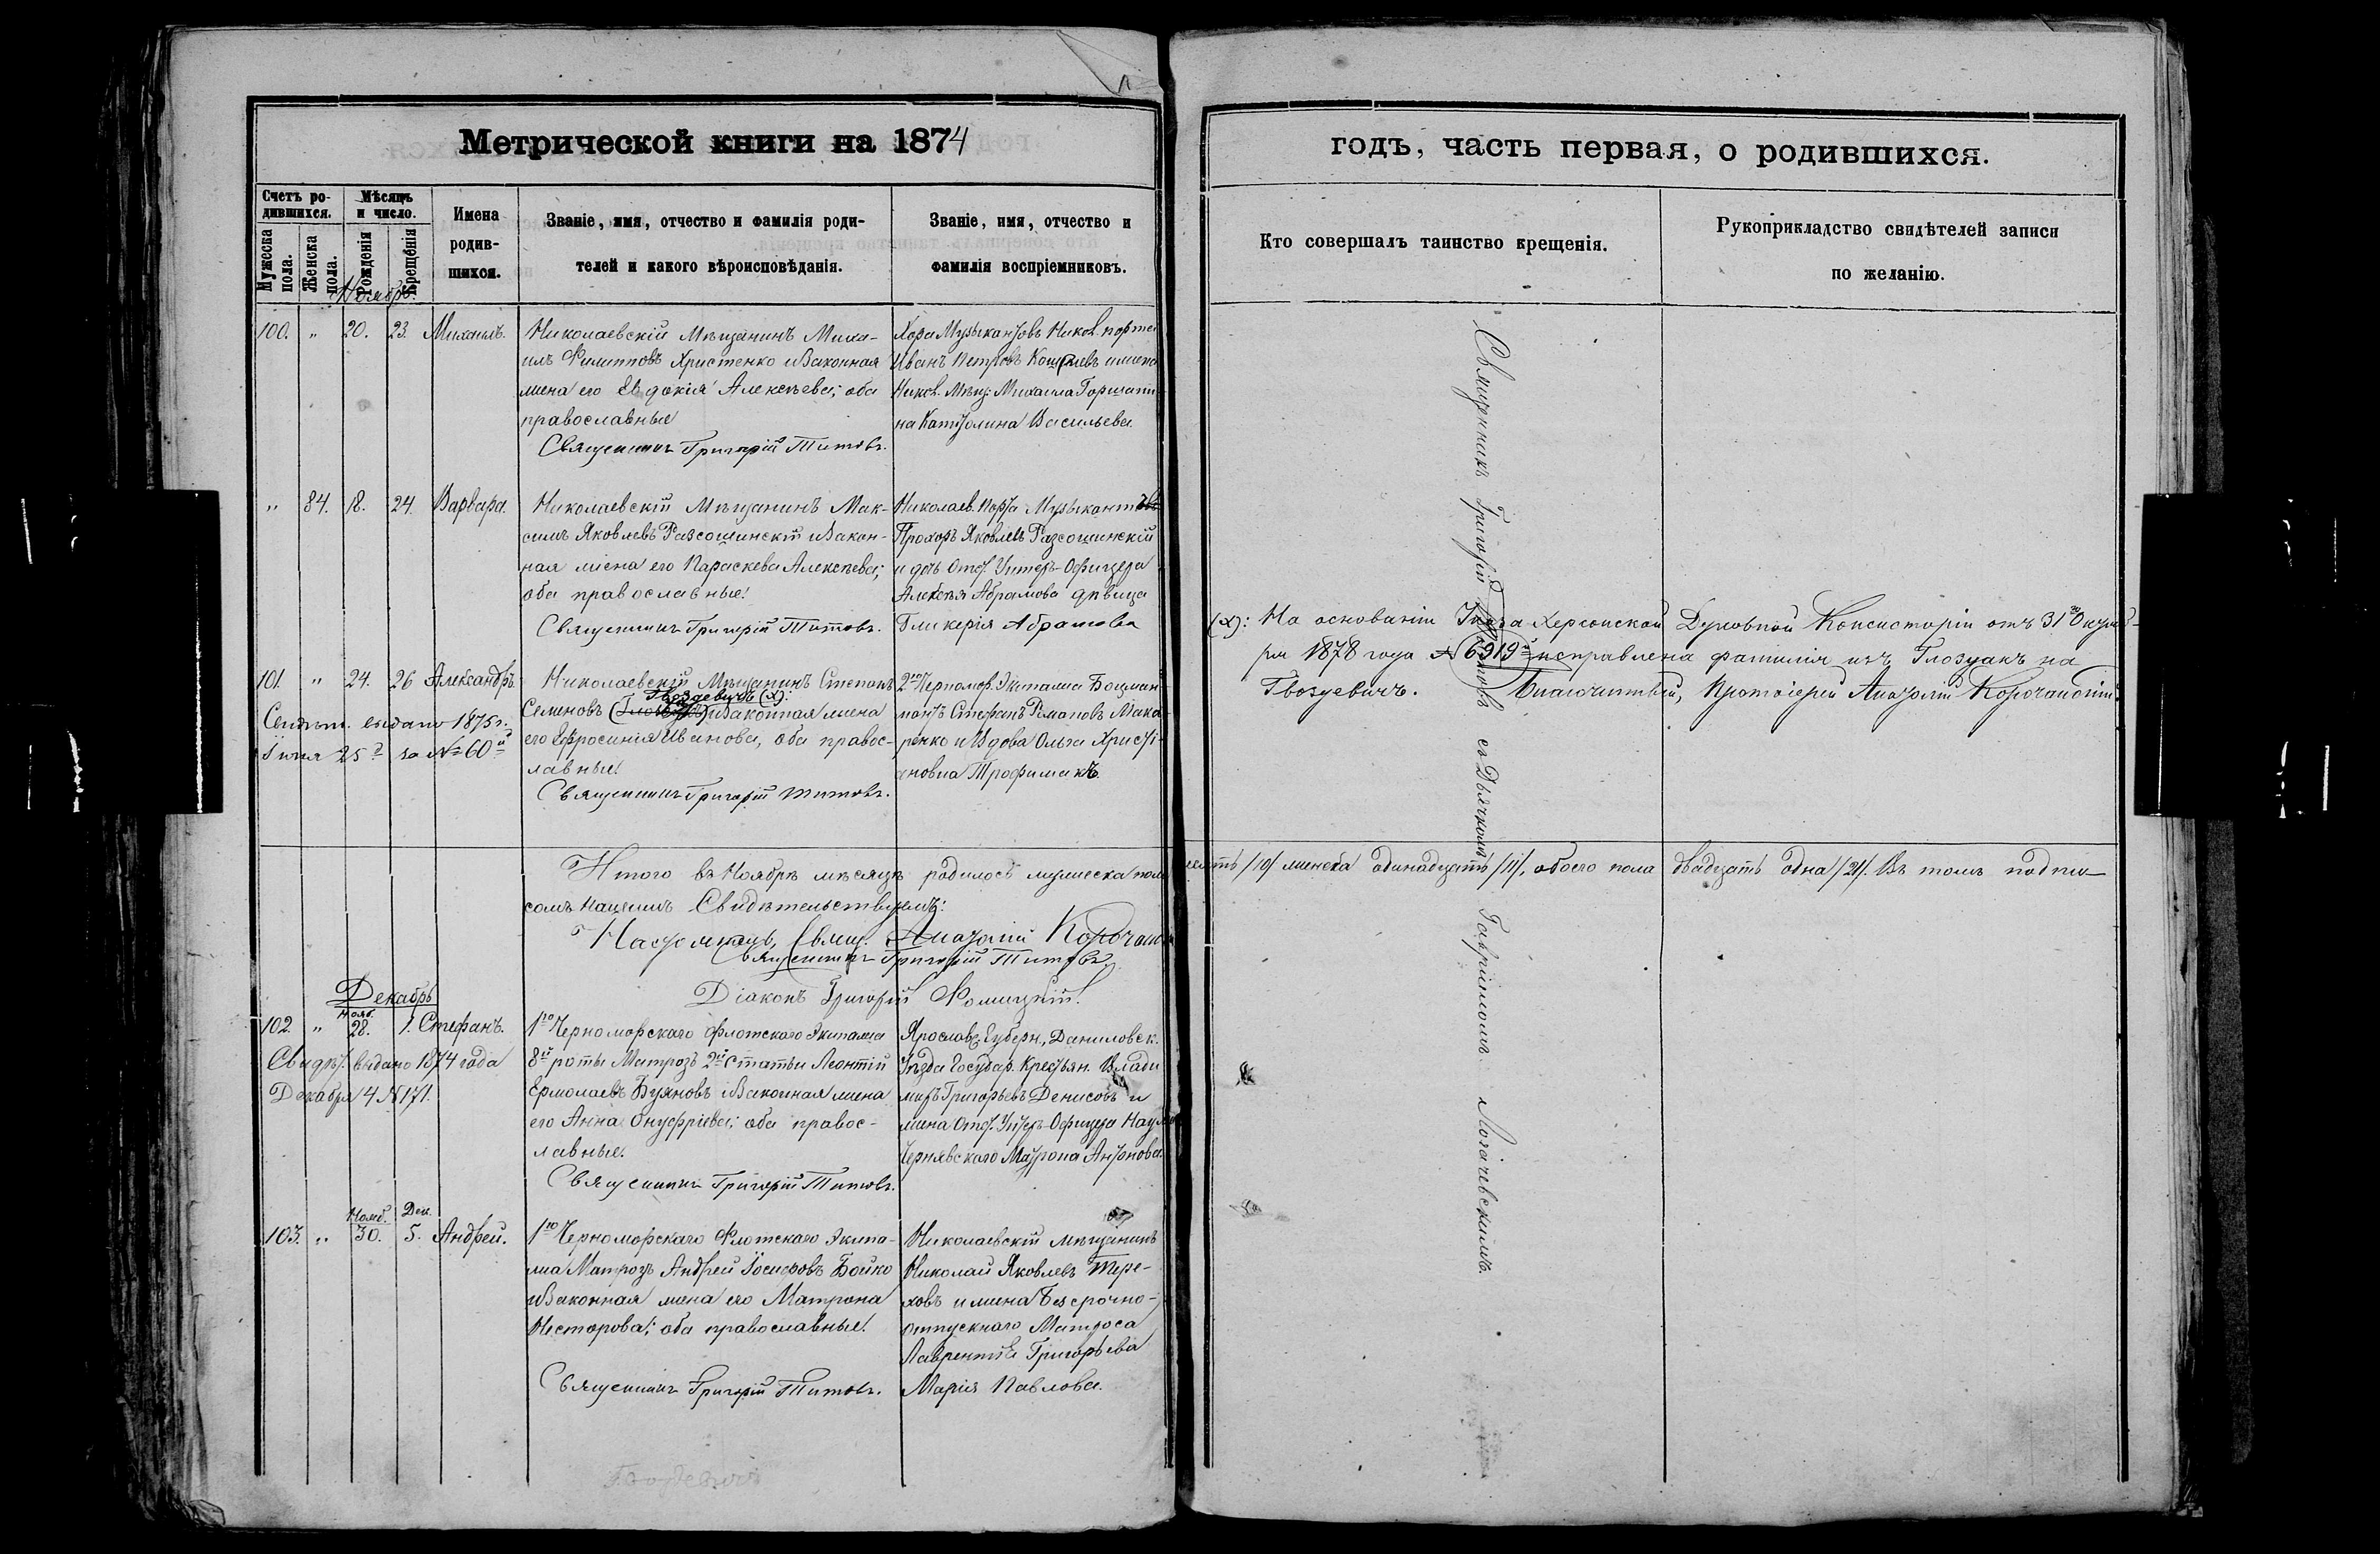 Метрической книги на 1874
Счетъ ро-
дившихся.
Мѣсяцъ
и число.
Мужеска
пола.
Женска
пола.
Рожденія
Крещенія
Имена
родив-
шихся.
Званіе, имя, отчество и фамилія роди-
телей и какого вѣроисповѣданія.
Званіе, имя, отчество и
фамилія воспріемниковъ.
Ноябрь.
100. " 20. 23. Михаилъ.
Николаевскій Мѣщанинъ Миха-
илъ Филипповъ Христенко и Законная
жена его Евдокія Алексѣева; оба
православные
Священникъ Григорій Титовъ.
Хора Музыкантовъ Никол. порта
Иванъ Петровъ и жена
Никол. Мѣщ. Михаила
на Васильева
" 84. 18. 24. Варвара.
Николаевскій Мѣщанинъ Мак-
симъ Яковлевъ Разсошинскій и Закон-
ная жена его Параскева Алексѣева;
оба православные!
Священникъ Григорій Титовъ.
Николаев. Порта Музыкантъ
Прохоръ Яковлевъ Разсошинскій
и дочь Отст. Унтеръ-Офицера
Алексѣя Абрамова дѣвица
Гликерія Абрамова
101. " 24. 26 Александръ.
Свидѣт. выдано 1875 г.
25 за № 60й
Николаевскій Мѣщанинъ Степанъ
Гвоздевичъ (х):
Семеновъ и Законная жена
его Ефросинія Иванова, оба правос-
лавные!
Священникъ Григорій Титовъ.
2го Черномор. Экипажа Боцман-
матъ Стефанъ Романовъ Мака-
ренко и Вдова Ольга Христі-
ановна Трофимакъ
Итого въ Ноябрѣ мѣсяцѣ родилось мужеска пола
сомъ нашимъ Свидѣтельствуемъ:
Настоятель, Свящ. Анатолій
Священникъ Григорій Титовъ
Діаконъ Григорій
Декабрь
Нояб.
102. " 28. 1. Стефанъ.
Свидѣт. выдано 1874 года
Декабря 4 № 171.
1го Черноморскаго Флотскаго Экипажа
8й роты Матрозъ 2й Статьи Леонтій
Ермолаевъ Буяновъ и Законная жена
его Анна Онуфріева; оба правос-
лавные.
Священникъ Григорій Титовъ.
Ярослав. Губерн., Даниловск.
Уѣзда Государ. Крестьян. Влади
миръ Григорьевъ Денисовъ и
жена Отст. Унтеръ-Офицера Наума
Чернявскаго Матрона Антонова.
Нояб. Дек.
103. " 30. 5. Андрей.
1го Черноморскаго Флотскаго Экипа-
жа Матрозъ Андрей Іосифовъ Бойко
и Законная жена его Матрона
Несторова; оба православные!
Священникъ Григорій Титовъ.
Николаевскій мѣщанинъ
Николай Яковлевъ Тере-
ховъ и жена Безсрочно-
отпускнаго Матроса
Лаврентія Григорьева
Марія Павлова.
Гвоздевичъ
годъ, часть первая, о родившихся.
Кто совершалъ таинство крещенія.
Рукоприкладство свидѣтелей записи
по желанію.
Священникъ Григорій Титовъ съ Дьячкомъ Гавріиломъ Логачевскимъ.
(х): На основаніи Указа Херсонской Духовной Консисторіи отъ 31го Октяб-
ря 1878 года № 6919й исправлена фамилія изъ Глозуакъ на
Гвоздевичъ. Благочинный, Протоіерей Анатолій
десять /10/ женска одинадцать /11/, обоего пола двадцать одна /21/. Въ томъ подпи-